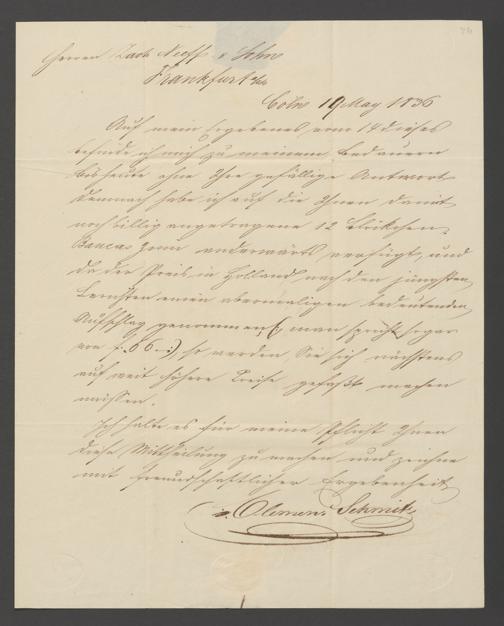 Herren Zach. Neeff & Sohn
Frankfurt a/m
Cöln 19 May 1836
Auf mein Ergebenes vom 14 dieses
befinde ich mich zu meinem Bedauern
bis heute ohne Ihre gefällige Antwort
demnach habe ich auf die Ihnen damit
noch billig angetragene 12 Blöckchen
Bancas Zinn anderwärts verfügt, und
da der Preis in Holland nach den jüngsten
Berichten einen abermaligen bedeutenden
Aufschlag genommen, (man spricht sogar
von f. 66 -:) so werden Sie sich nächstens
auf weit höhere Preise gefaßt machen
müssen.
Ich halte es für meine Pflicht Ihnen
diese Mittheilung zu machen und zeichne
mit freundschaftlicher Ergebenheit
Clemens Schmitz